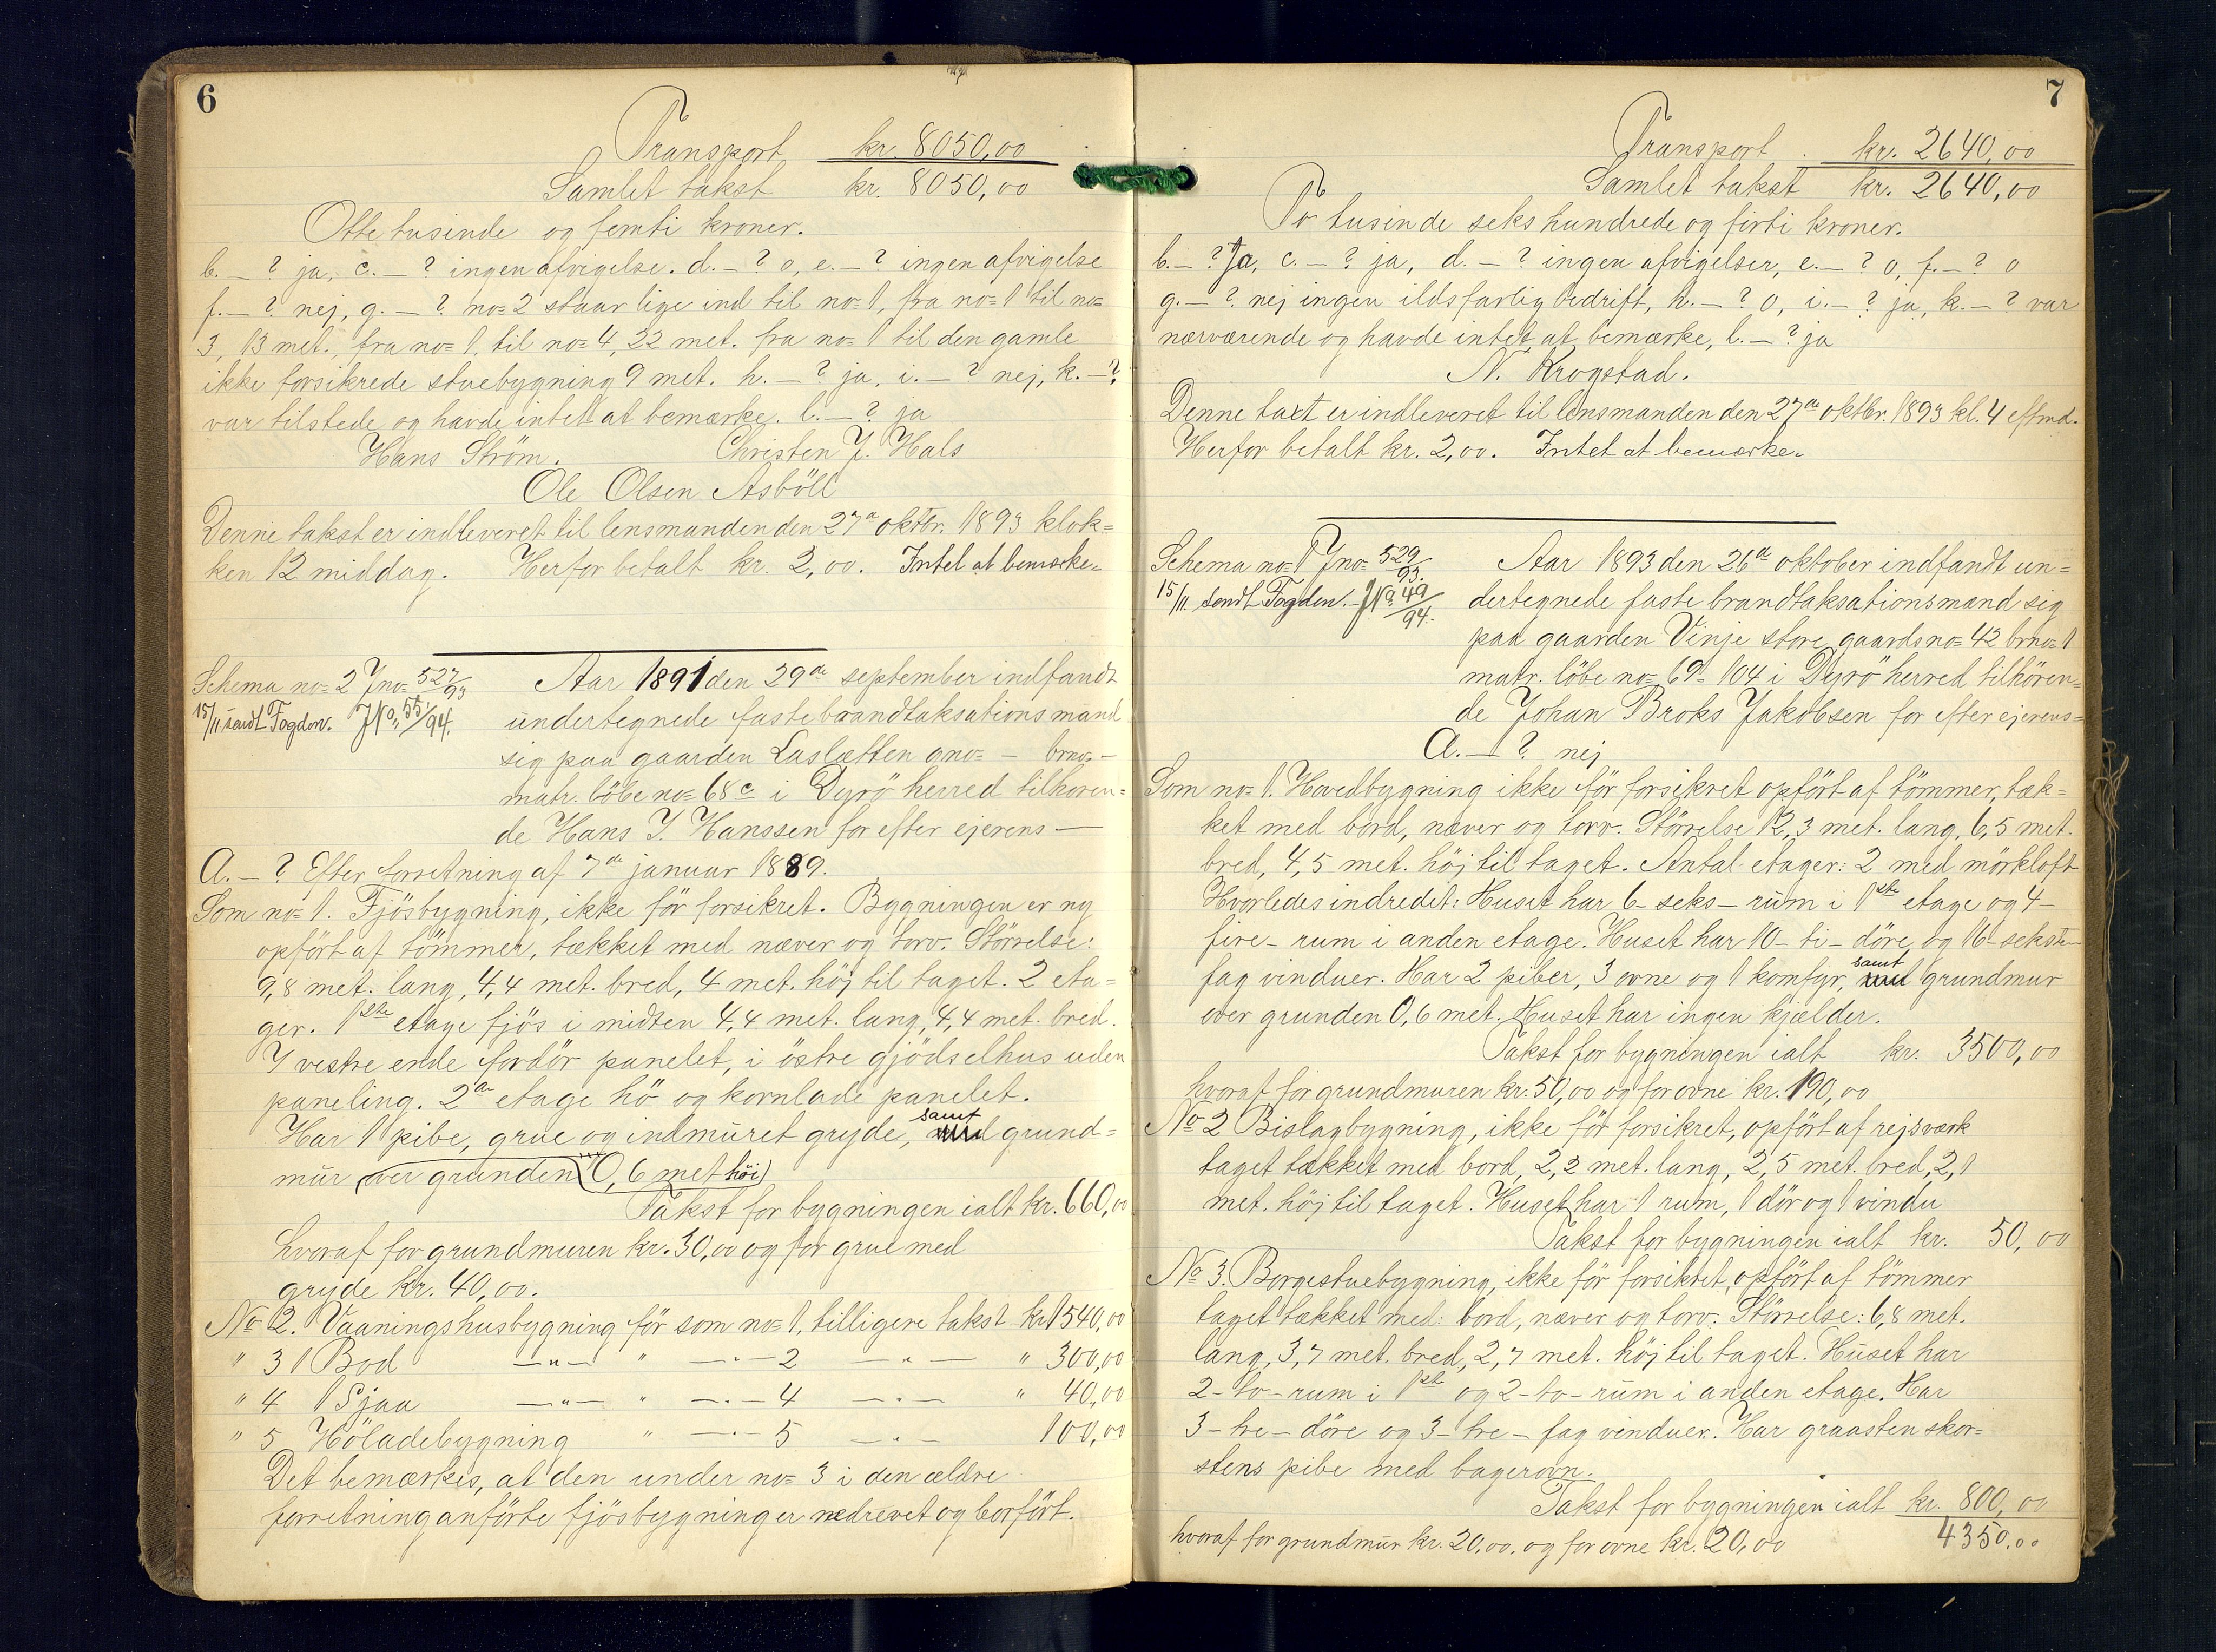 6
Transport kr. 8050,00
Samlet takst kr. 8050,00
Otte tusinde og femti kroner.
b. — ? ja, c. — ? ingen afvigelse. d. — ? o, e. — ? ingen afvigelse
f. — ? nej, g. — ? no= 2 staar lige ind til no= 1, fra no= 1 til no=
3, 13 met., fra no= 1, til no= 4, 22 met. fra no= 1 til den gamle
ikke forsikrede stuebygning 9 met. h. — ? ja, i. — ? nej, k. — ?
var tilstede og havde intet at bemærke. l. — ? ja
Hans Ström. Christen J. Hals
Ole Olsen Asböll
Denne takst er indleveret til lensmanden den 27de oktbr. 1893 klok=
ken 12 middag. Herfor betalt kr. 2,00. Intet at bemærke.
Schema no= 2 Jno= 527/93
15/11 sendt Fogden. JNo. 55/94.
Aar 1891 den 29de september indfandt
undertegnede faste brandtaksationsmænd
sig paa gaarden Laslætten gno= — brno= —
matr. löbe no= 68c i Dyrö herred tilhören=
de Hans J. Hanssen for efter ejerens —
A. — ? Efter forretning af 7de januar 1889.
Som no= 1. Fjösbygning, ikke för forsikret. Bygningen er ny
opfört af tömmer, tækket med næver og torv. Störrelse:
9,8 met. lang, 4,4 met. bred, 4 met. höj til taget. 2 eta=
ger. 1ste etage fjös i midten 4,4 met. lang, 4,4 met. bred.
I vestre ende fordör panelet, i östre gjödselhus uden
paneling. 2den etage hö og kornlade panelet.
Har 1 pibe, grue og indmuret gryde, samt grund=
mur over grunden (0,6 met höi)
Takst for bygningen ialt kr. 660,00
hvoraf for grundmuren kr. 30,00 og for grue med
gryde kr. 40,00.
No 2. Vaaningshusbygning för som no= 1, tilligere takst kr 1540,00
" 3 1 Bod —"— " —"— 2 —"— " 300,00
" 4 1 Sjaa —"— " —"— 4 —"— " 40,00
" 5 Höladebygning " —"— 5 —"— 100,00
Det bemærkes, at den under no= 3 i den ældre
forretning anförte fjösbygning er nedrevet og borfört.
7
Transport kr. 2640,00
Samlet takst kr. 2640,00
To tusinde seks hundrede og firti kroner.
b. — ? Ja, c. — ? ja, d. — ? ingen afvigelser, e. — ? o, f. — ? o
g. — ? nej ingen ildsfarlig bedrift, h. — ? o, i. — ? ja, k. — ? var
nærværende og havde intet at bemærke, l. — ? ja
N. Krogstad.
Denne taxt er indleveret til lensmanden den 27de oktbr. 1893 kl. 4 eftmd.
Herfor betalt kr. 2,00. Intet at bemærke.
Schema no= 1 Jno= 529/93.
15/11 sendt Fogden. JNo. 49/94.
Aar 1893 den 26de oktober indfandt un=
dertegnede faste brandtaksationsmænd sig
paa gaarden Vinje store gaardsno= 42 brno= 1
matr. löbe no= 69= 104 i Dyrö herred tilhören=
de Johan Broks Jakobsen for efter ejerens =
A. — ? nej
Som no= 1. Hovedbygning ikke för forsikret opfört af tömmer, tæk=
ket med bord, næver og torv. Störrelse 12,3 met. lang, 6,5 met.
bred, 4,5 met. höj til taget. Antal etager: 2 med mörkloft
Hvorledes indredet: Huset har 6 – seks – rum i 1ste etage og 4 –
fire – rum i anden etage. Huset har 10 – ti – döre og 16 – seksten –
fag vinduer. Har 2 piber, 3 ovne og 1 komfyr, samt grundmur
over grunden 0,6 met. Huset har ingen kjælder.
Takst for bygningen ialt kr. 3500,00
hvoraf for grundmuren kr. 50,00 og for ovne kr. 190,00
No 2 Bislagbygning, ikke för forsikret, opfört af rejsværk
taget tækket med bord, 2,2 met. lang, 2,5 met. bred, 2,1
met. höj til taget. Huset har 1 rum, 1 dör og 1 vindu
Takst for bygningen ialt kr. 50,00
No 3. Borgestuebygning, ikke för forsikret, opfört af tömmer
taget tækket med: bord, næver og torv. Störrelse: 6,8 met.
lang, 3,7 met. bred, 2,7 met. höj til taget. Huset har
2 – to – rum i 1ste og 2 – to – rum i anden etage. Har
3 – tre – döre og 3 – tre – fag vinduer. Har graasten skor=
stens pibe med bagerovn.
Takst for bygningen ialt kr. 800,00
hvoraf for grundmur kr. 20,00. og for ovne kr. 20,00 4350,00